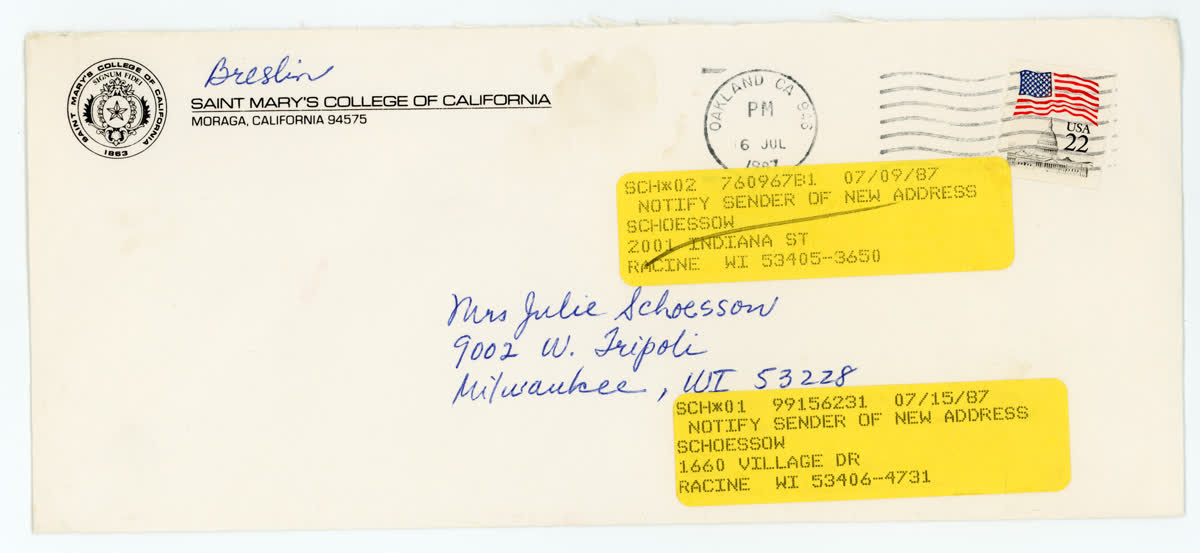 SAINT MARY'S COLLEGE OF CALIFORNIA
SIGNUM FIDEI
1863
Breslin
SAINT MARY'S COLLEGE OF CALIFORNIA
MORAGA, CALIFORNIA 94575
OAKLAND CA
PM
6 JUL
1987
USA
22
SCH*02 760967B1 07/09/87
NOTIFY SENDER OF NEW ADDRESS
SCHOESSOW
2001 INDIANA ST
RACINE WI 53405-3650
Mrs Julie Schoessow
9002 W. Tripoli
Milwaukee, WI 53228
SCH*01 99156231 07/15/87
NOTIFY SENDER OF NEW ADDRESS
SCHOESSOW
1660 VILLAGE DR
RACINE WI 53406-4731